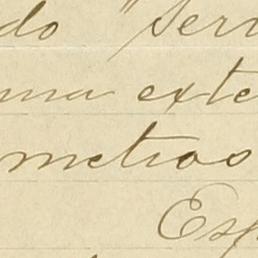 do "Serv
ma exte
metros
Esp